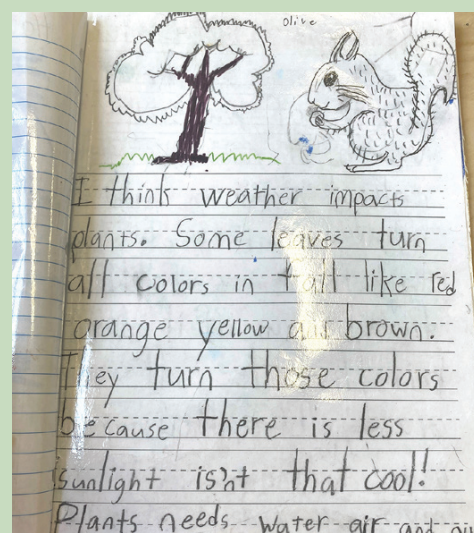 Olive
I think weather impacts
plants. Some leaves turn
all colors in fall like red
orange yellow brown.
They turn those colors
because there is less
sunlight is'nt that cool!
Plants needs water air and